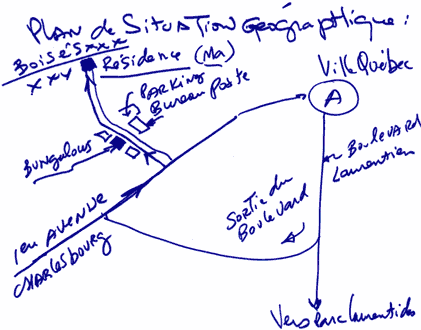 PLAN de SITUATION GÉOgRAPHIQUE :
BOISÉS XXX
XXX
Résidence (Ma)
PARKING
Bureau Poste
Ville Québec
A
Bungalous
BOULEVARD
Laurentien
SORTIE du
Boulevard
1èu AVENUE
CHARLESBOURG
Vers Parc Laurentides